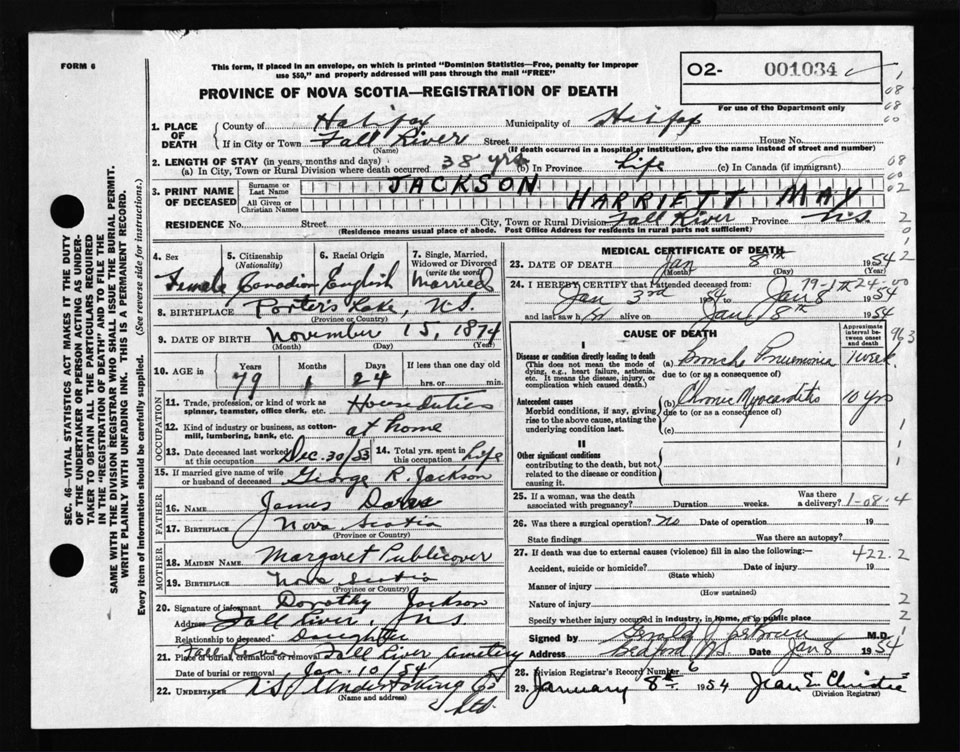 FORM 6
This form, if placed in an envelope, on which is printed "Dominion Statistics—Free, penalty for improper
use $50," and properly addressed will pass through the mail "FREE"
O2- 001034
For use of the Department only
PROVINCE OF NOVA SCOTIA—REGISTRATION OF DEATH
1. PLACE OF DEATH
County of Halifax Municipality of Halifax
If in City or Town Fall River Street House No.
(Name) (If death occurred in a hospital or institution, give the name instead of street and number)
2. LENGTH OF STAY (in years, months and days)
(a) In City, Town or Rural Division where death occurred 38 yrs (b) In Province Life (c) In Canada (if immigrant)
3. PRINT NAME OF DECEASED
Surname or Last Name JACKSON
All Given or Christian Names HARRIETT MAY
RESIDENCE No. Street City, Town or Rural Division Fall River Province N.S.
(Residence means usual place of abode. Post Office Address for residents in rural parts not sufficient)
4. Sex Female
5. Citizenship (Nationality) Canadian
6. Racial Origin English
7. Single, Married, Widowed or Divorced (write the word) Married
8. BIRTHPLACE Porter's Lake, N.S.
(Province or Country)
9. DATE OF BIRTH November 15, 1874
(Month) (Day) (Year)
10. AGE in Years Months Days If less than one day old
79 1 24 hrs. or min.
OCCUPATION
11. Trade, profession, or kind of work as spinner, teamster, office clerk, etc. House duties
12. Kind of industry or business, as cotton-mill, lumbering, bank, etc. at home
13. Date deceased last worked at this occupation Dec. 30/53
14. Total yrs. spent in this occupation Life
15. If married give name of wife or husband of deceased George R. Jackson
FATHER
16. NAME James
17. BIRTHPLACE Nova Scotia
(Province or Country)
MOTHER
18. MAIDEN NAME Margaret Publicover
19. BIRTHPLACE Nova Scotia
(Province or Country)
20. Signature of informant Dorothy Jackson
Address Fall River, N.S.
Relationship to deceased Daughter
21. Place of burial, cremation or removal Fall River Fall River Cemetery
Date of burial or removal Jan. 10/54
22. UNDERTAKER N.S. Undertaking Co Ltd.
(Name and address)
MEDICAL CERTIFICATE OF DEATH
23. DATE OF DEATH Jan 8th 1954
(Month) (Day) (Year)
24. I HEREBY CERTIFY that I attended deceased from:
Jan 3rd 1954 to Jan 8 1954
and last saw h er alive on Jan 8th 1954
CAUSE OF DEATH
Approximate interval between onset and death
I
Disease or condition directly leading to death
(This does not mean the mode of dying, e.g., heart failure, asthenia, etc. It means the disease, injury, or complication which caused death.)
(a) Broncho Pneumonia 1 week
due to (or as a consequence of)
Antecedent causes
Morbid conditions, if any, giving rise to the above cause, stating the underlying condition last.
(b) Chronic Myocarditis 10 yrs
due to (or as a consequence of)
(c)
II
Other significant conditions
contributing to the death, but not related to the disease or condition causing it.
25. If a woman, was the death associated with pregnancy? Duration weeks. Was there a delivery?
26. Was there a surgical operation? No Date of operation 19
State findings Was there an autopsy?
27. If death was due to external causes (violence) fill in also the following:—
Accident, suicide or homicide? Date of injury 19
(State which)
Manner of injury
(How sustained)
Nature of injury
Specify whether injury occurred in industry, in home, or in public place
Signed by M.D.
Address Bedford N.S. Date Jan 8 1954
28. Division Registrar's Record Number 6
29. January 8th 1954 Jean E. Christie
(Division Registrar)
79-1-24-00
963
1-08-4
422.2
SEC. 46—VITAL STATISTICS ACT MAKES IT THE DUTY
OF THE UNDERTAKER OR PERSON ACTING AS UNDER-
TAKER TO OBTAIN ALL THE PARTICULARS REQUIRED
IN THE "REGISTRATION OF DEATH" AND TO FILE THE
SAME WITH THE DIVISION REGISTRAR WHO SHALL ISSUE THE BURIAL PERMIT.
WRITE PLAINLY WITH UNFADING INK. THIS IS A PERMANENT RECORD.
Every item of information should be carefully supplied. (See reverse side for instructions.)